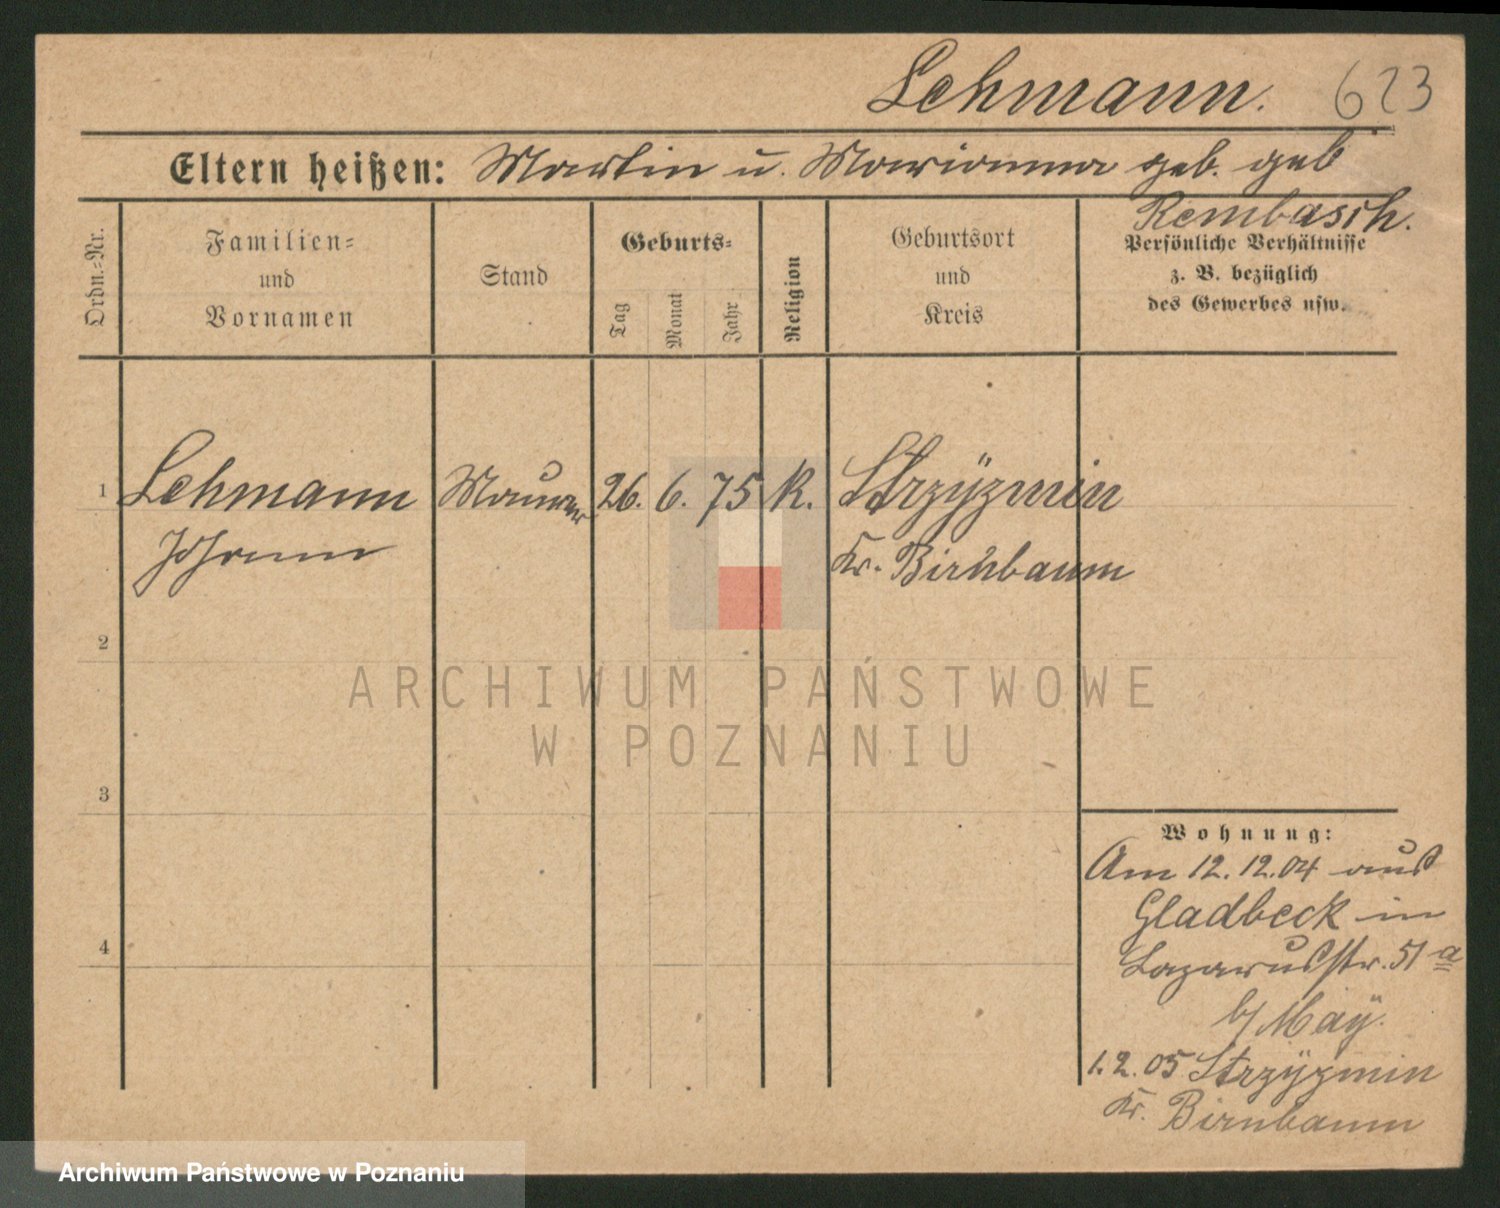 Lehmann. 623
Eltern heißen: Martin u. Marianna geb. geb
Rembasch.
Ordn.-Nr.
Familien-
und
Vornamen
Stand
Geburts-
Tag
Monat
Jahr
Religion
Geburtsort
und
Kreis
Persönliche Verhältnisse
z. B. bezüglich
des Gewerbes usw.
1 Lehmann Maurer 26. 6. 75 K. Strzÿzmin
Johann Kr. Birnbaum
2
3
4
Wohnung:
Am 12.12.04 aus
Gladbeck in
Lazarusstr. 51 a
b/ Maÿ.
1.2.05 Strzÿzmin
Kr. Birnbaum
ARCHIWUM PAŃSTWOWE
W POZNANIU
Archiwum Państwowe w Poznaniu